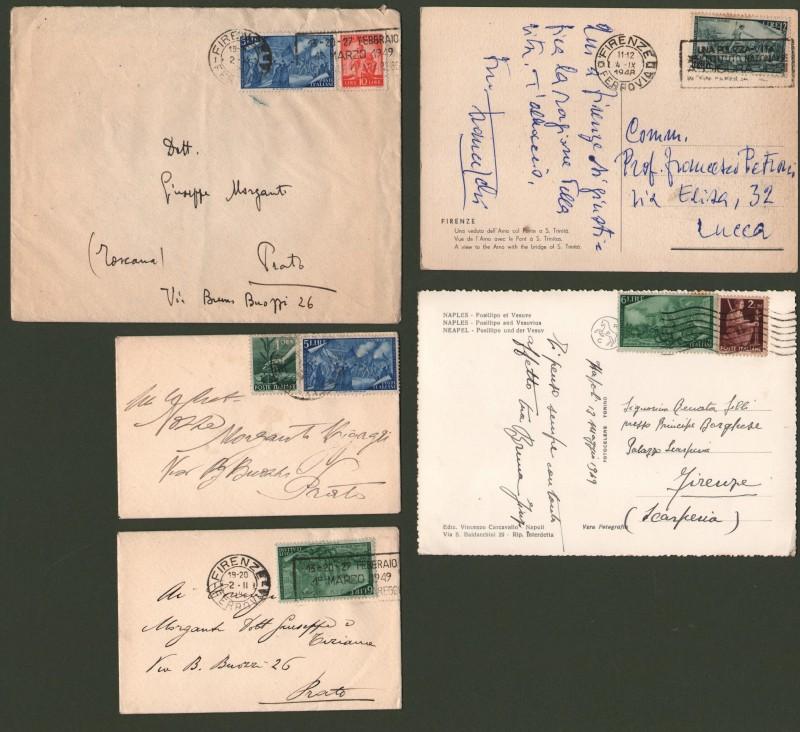 FIRENZE
FERROVIA
13-20-27 FEBBRAIO
MARZO 1949
10 LIRE
Dott.
Giuseppe Morganti
(Toscana) Prato
Via Bruno Buozzi 26
FIRENZE
11-12
4-IX
1948
FERROVIA
Qui a Firenze
la ragione della
vita. T'abbraccio,
Comm.
Prof. Francesco Petroni
Via Elisa, 32
Lucca
FIRENZE
Una veduta dell'Arno col Ponte a S. Trinita.
Vue de l'Arno avec le Pont a S. Trinitas.
A view to the Arno with the bridge of S. Trinita.
5 LIRE
POSTE ITALIANE
Nozze
Morganti
Via B. Buozzi
Prato
NAPLES - Posillipo et Vesuve
NAPLES - Posillipo and Vesuvius
NEAPEL - Posillipo und der Vesuv
6 LIRE
Ti penso sempre con tanto
affetto tua Bruna
Napoli 17 maggio 1949
FOTOCELERE TORINO
Signorina Renata
presso Principe Borghese
Palazzo
Firenze
(Scarperia)
Ediz. Vincenzo Carcavallo - Napoli
Via S. Baldacchini 29 - Rip. Interdetta
Vera Fotografia
FIRENZE
19-20
2-II
FERROVIA
13-20-27 FEBBRAIO
1° MARZO 1949
Ai
Morganti Dott Giuseppe e
Tiziana
Via B. Buozzi 26
Prato